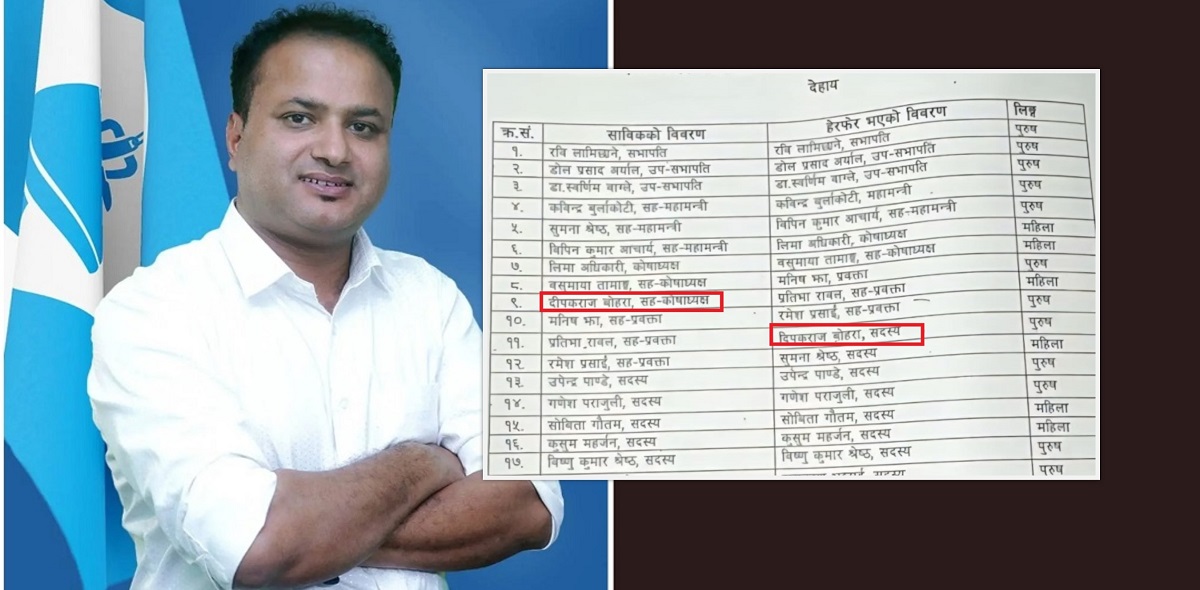 देहाय
क्र.सं. साविकको विवरण हेरफेर भएको विवरण लिङ्ग
१. रवि लामिछाने, सभापति रवि लामिछाने, सभापति पुरुष
२. डोल प्रसाद अर्याल, उप-सभापति डोल प्रसाद अर्याल, उप-सभापति पुरुष
३. डा.स्वर्णिम वाग्ले, उप-सभापति डा.स्वर्णिम वाग्ले, उप-सभापति पुरुष
४. कविन्द्र बुर्लाकोटी, सह-महामन्त्री कविन्द्र बुर्लाकोटी, महामन्त्री पुरुष
५. सुमना श्रेष्ठ, सह-महामन्त्री विपिन कुमार आचार्य, सह-महामन्त्री पुरुष
६. विपिन कुमार आचार्य, सह-महामन्त्री लिमा अधिकारी, कोषाध्यक्ष महिला
७. लिमा अधिकारी, कोषाध्यक्ष वसुमाया तामाङ, सह-कोषाध्यक्ष महिला
८. वसुमाया तामाङ, सह-कोषाध्यक्ष मनिष झा, प्रवक्ता पुरुष
९. दीपकराज बोहरा, सह-कोषाध्यक्ष प्रतिभा रावल, सह-प्रवक्ता महिला
१०. मनिष झा, सह-प्रवक्ता रमेश प्रसाईं, सह-प्रवक्ता पुरुष
११. प्रतिभा रावल, सह-प्रवक्ता दिपकराज बोहरा, सदस्य पुरुष
१२. रमेश प्रसाईं, सह-प्रवक्ता सुमना श्रेष्ठ, सदस्य महिला
१३. उपेन्द्र पाण्डे, सदस्य उपेन्द्र पाण्डे, सदस्य पुरुष
१४. गणेश पराजुली, सदस्य गणेश पराजुली, सदस्य पुरुष
१५. सोबिता गौतम, सदस्य सोबिता गौतम, सदस्य महिला
१६. कुसुम महर्जन, सदस्य कुसुम महर्जन, सदस्य महिला
१७. विष्णु कुमार श्रेष्ठ, सदस्य विष्णु कुमार श्रेष्ठ, सदस्य पुरुष
सदस्य पुरुष